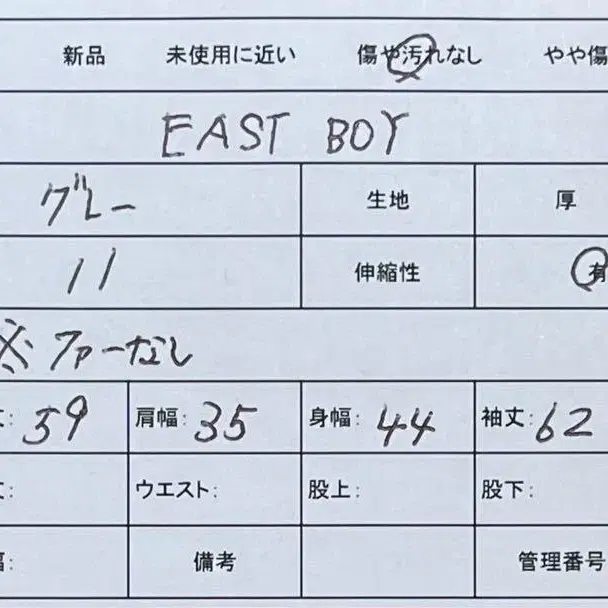 新品 未使用に近い 傷や汚れなし やや傷
EAST BOY
グレー 生地 厚
11 伸縮性 有
※ファーなし
丈: 59 肩幅: 35 身幅: 44 袖丈: 62
丈: ウエスト: 股上: 股下:
幅: 備考 管理番号